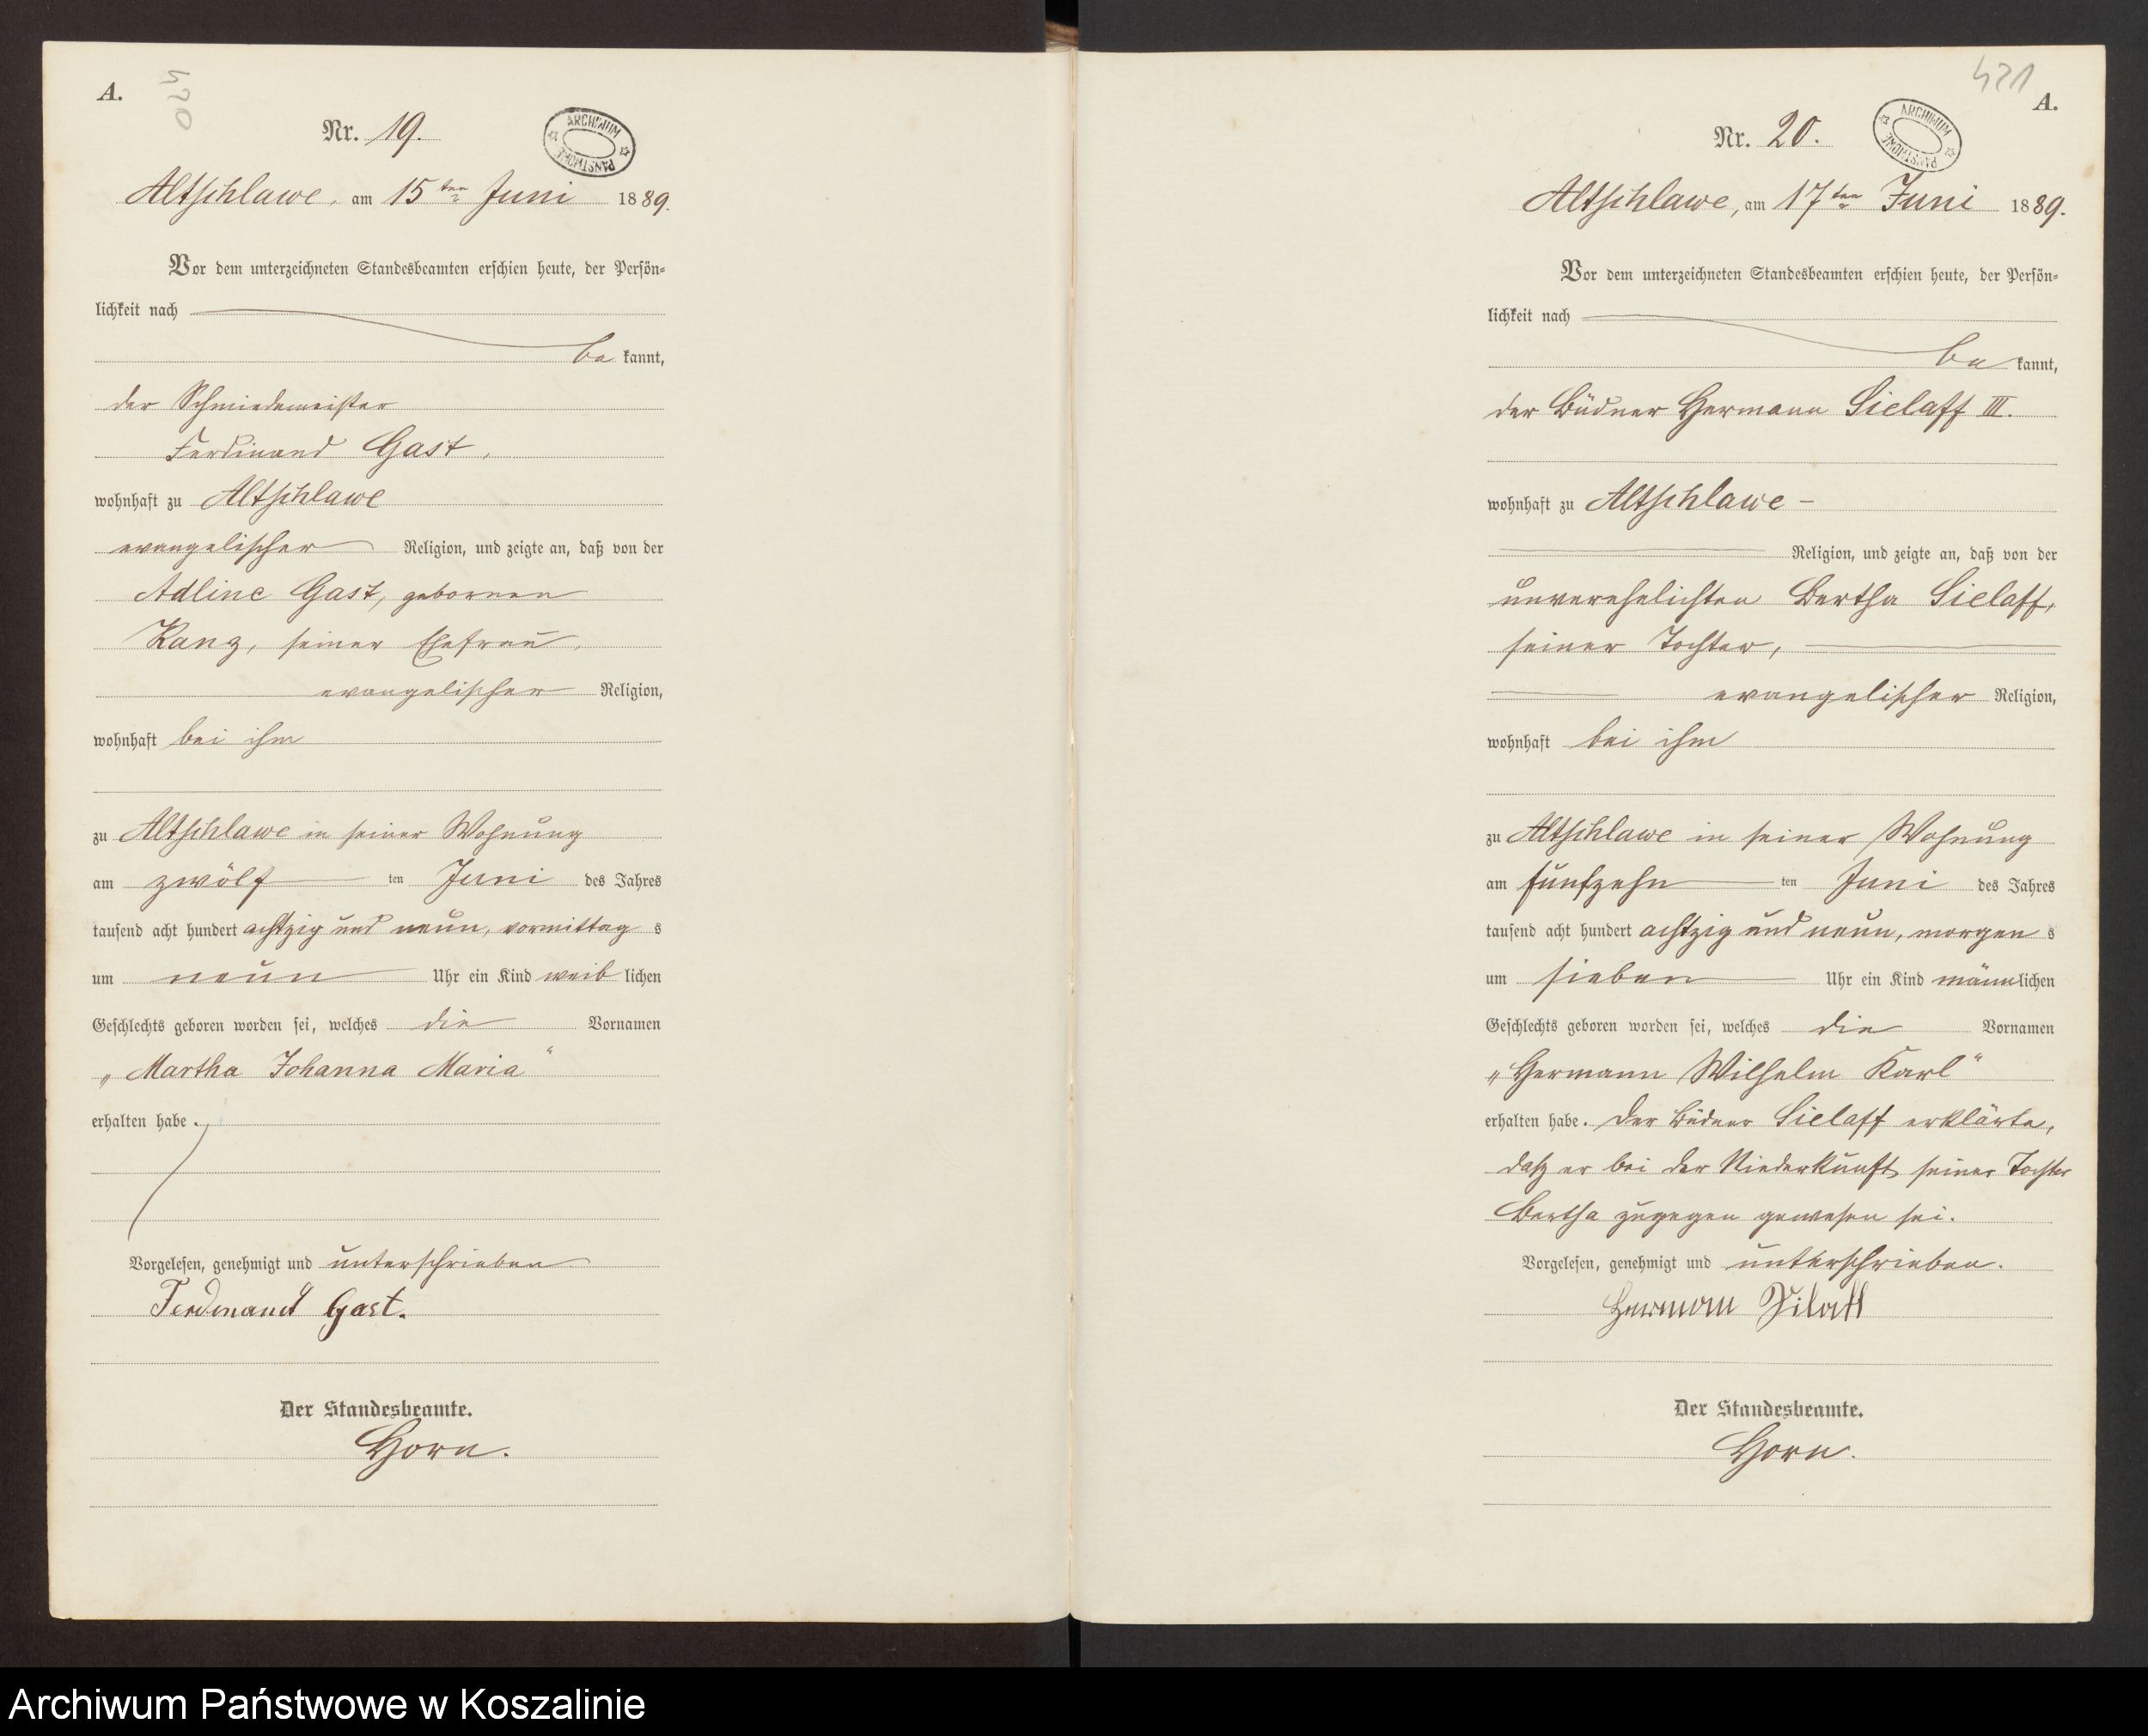 A.
420
Nr. 19.
ARCHIWUM PAŃSTWOWE
Altschlawe, am 15ten Juni 1889.
Vor dem unterzeichneten Standesbeamten erschien heute, der Persön-
lichkeit nach
be kannt,
der Schmiedemeister
Ferdinand Gast,
wohnhaft zu Altschlawe
evangelischer Religion, und zeigte an, daß von der
Adline Gast, gebornen
Kanz, seiner Ehefrau,
evangelischer Religion,
wohnhaft bei ihm
zu Altschlawe in seiner Wohnung
am zwölf ten Juni des Jahres
tausend acht hundert achtzig und neun, vormittag s
um neun Uhr ein Kind weib lichen
Geschlechts geboren worden sei, welches die Vornamen
„Martha Johanna Maria“
erhalten habe.
Vorgelesen, genehmigt und unterschrieben
Ferdinand Gast.
Der Standesbeamte.
Horn.
421
A.
Nr. 20.
ARCHIWUM PAŃSTWOWE
Altschlawe, am 17ten Juni 1889.
Vor dem unterzeichneten Standesbeamten erschien heute, der Persön-
lichkeit nach
be kannt,
der Büdner Hermann Sielaff III.
wohnhaft zu Altschlawe –
Religion, und zeigte an, daß von der
unverehelichten Bertha Sielaff,
seiner Tochter,
evangelischer Religion,
wohnhaft bei ihm
zu Altschlawe in seiner Wohnung
am fünfzehn ten Juni des Jahres
tausend acht hundert achtzig und neun, morgen s
um sieben Uhr ein Kind männlichen
Geschlechts geboren worden sei, welches die Vornamen
„Hermann Wilhelm Karl“
erhalten habe. Der Büdner Sielaff erklärte,
daß er bei der Niederkunft seiner Tochter
Bertha zugegen gewesen sei.
Vorgelesen, genehmigt und unterschrieben.
Herman Silaff
Der Standesbeamte.
Horn.
Archiwum Państwowe w Koszalinie